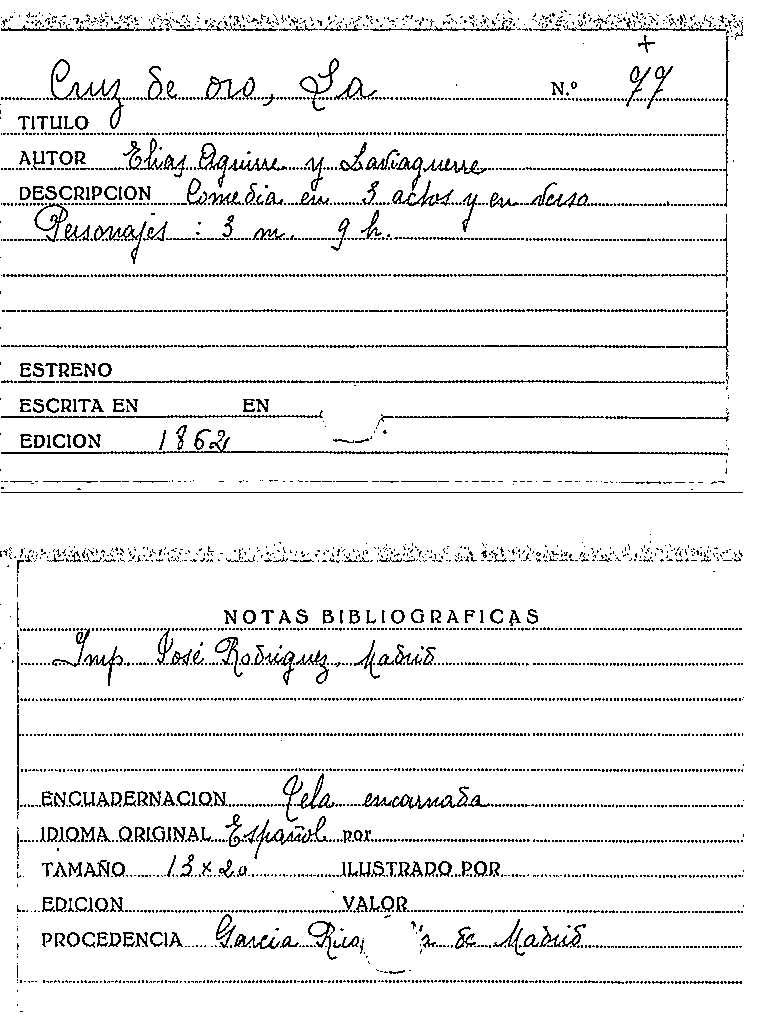 +
Cruz de oro, La N.º 77
TITULO
AUTOR Elias Aguirre y Laviaguerre
DESCRIPCION Comedia en 3 actos y en verso
Personajes : 3 m. 9 h.
ESTRENO
ESCRITA EN EN
EDICION 1862
NOTAS BIBLIOGRAFICAS
Imp. José Rodriguez. Madrid
ENCUADERNACION Tela encarnada
IDIOMA ORIGINAL Español por
TAMAÑO 13 x 20 ILUSTRADO POR
EDICION VALOR
PROCEDENCIA Garcia Rico de Madrid